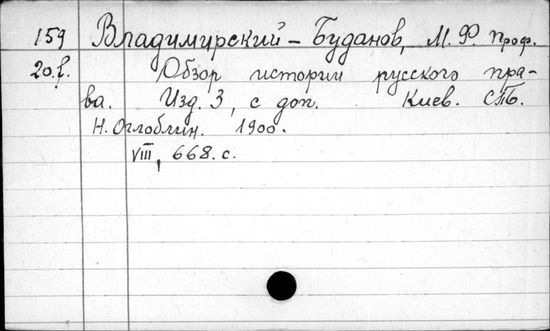 159 Владимирский-Буданов, М. Ф. проф.
20.f. Обзор истории русского пра-
ва. Изд. 3, с доп. Киев. СПБ.
Н. Оглоблин. 1900.
VIII, 668. с.